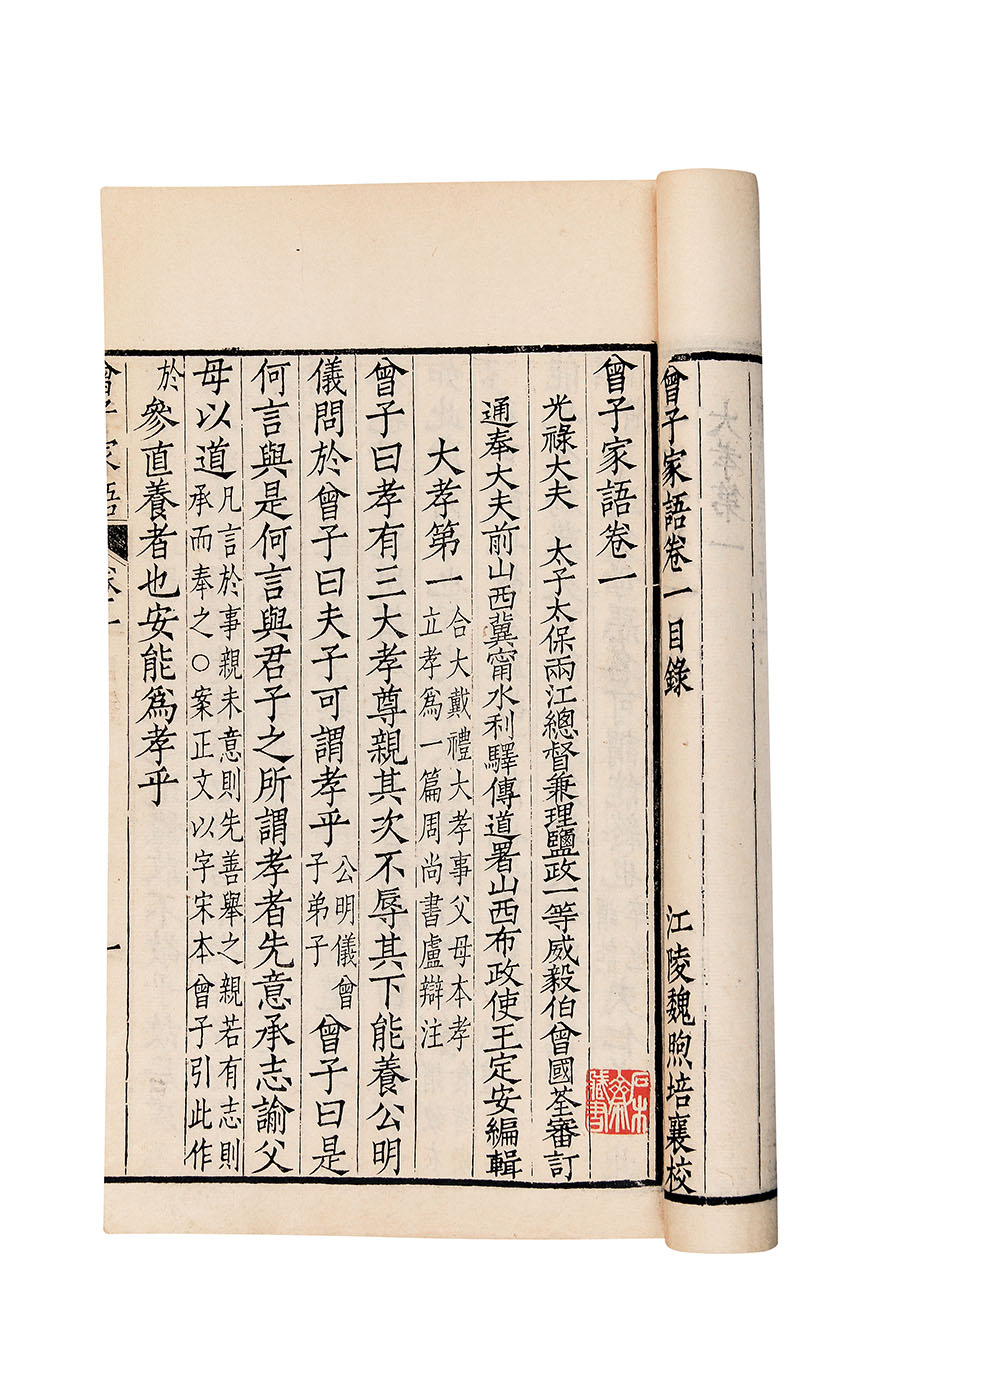 曾子家語卷一目錄
江陵魏煦培襄校
曾子家語卷一
光祿大夫　太子太保兩江總督兼理鹽政一等威毅伯曾國荃審訂
通奉大夫前山西冀甯水利驛傳道署山西布政使王定安編輯
大孝第一
合大戴禮大孝事父母本孝
立孝爲一篇周尚書盧辯注
曾子曰孝有三大孝尊親其次不辱其下能養公明
儀問於曾子曰夫子可謂孝乎
公明儀曾
子弟子
曾子曰是
何言與是何言與君子之所謂孝者先意承志諭父
母以道
凡言於事親未意則先善舉之親若有志則
承而奉之○案正文以字宋本曾子引此作
於
參直養者也安能爲孝乎
曾子家語
卷一
一